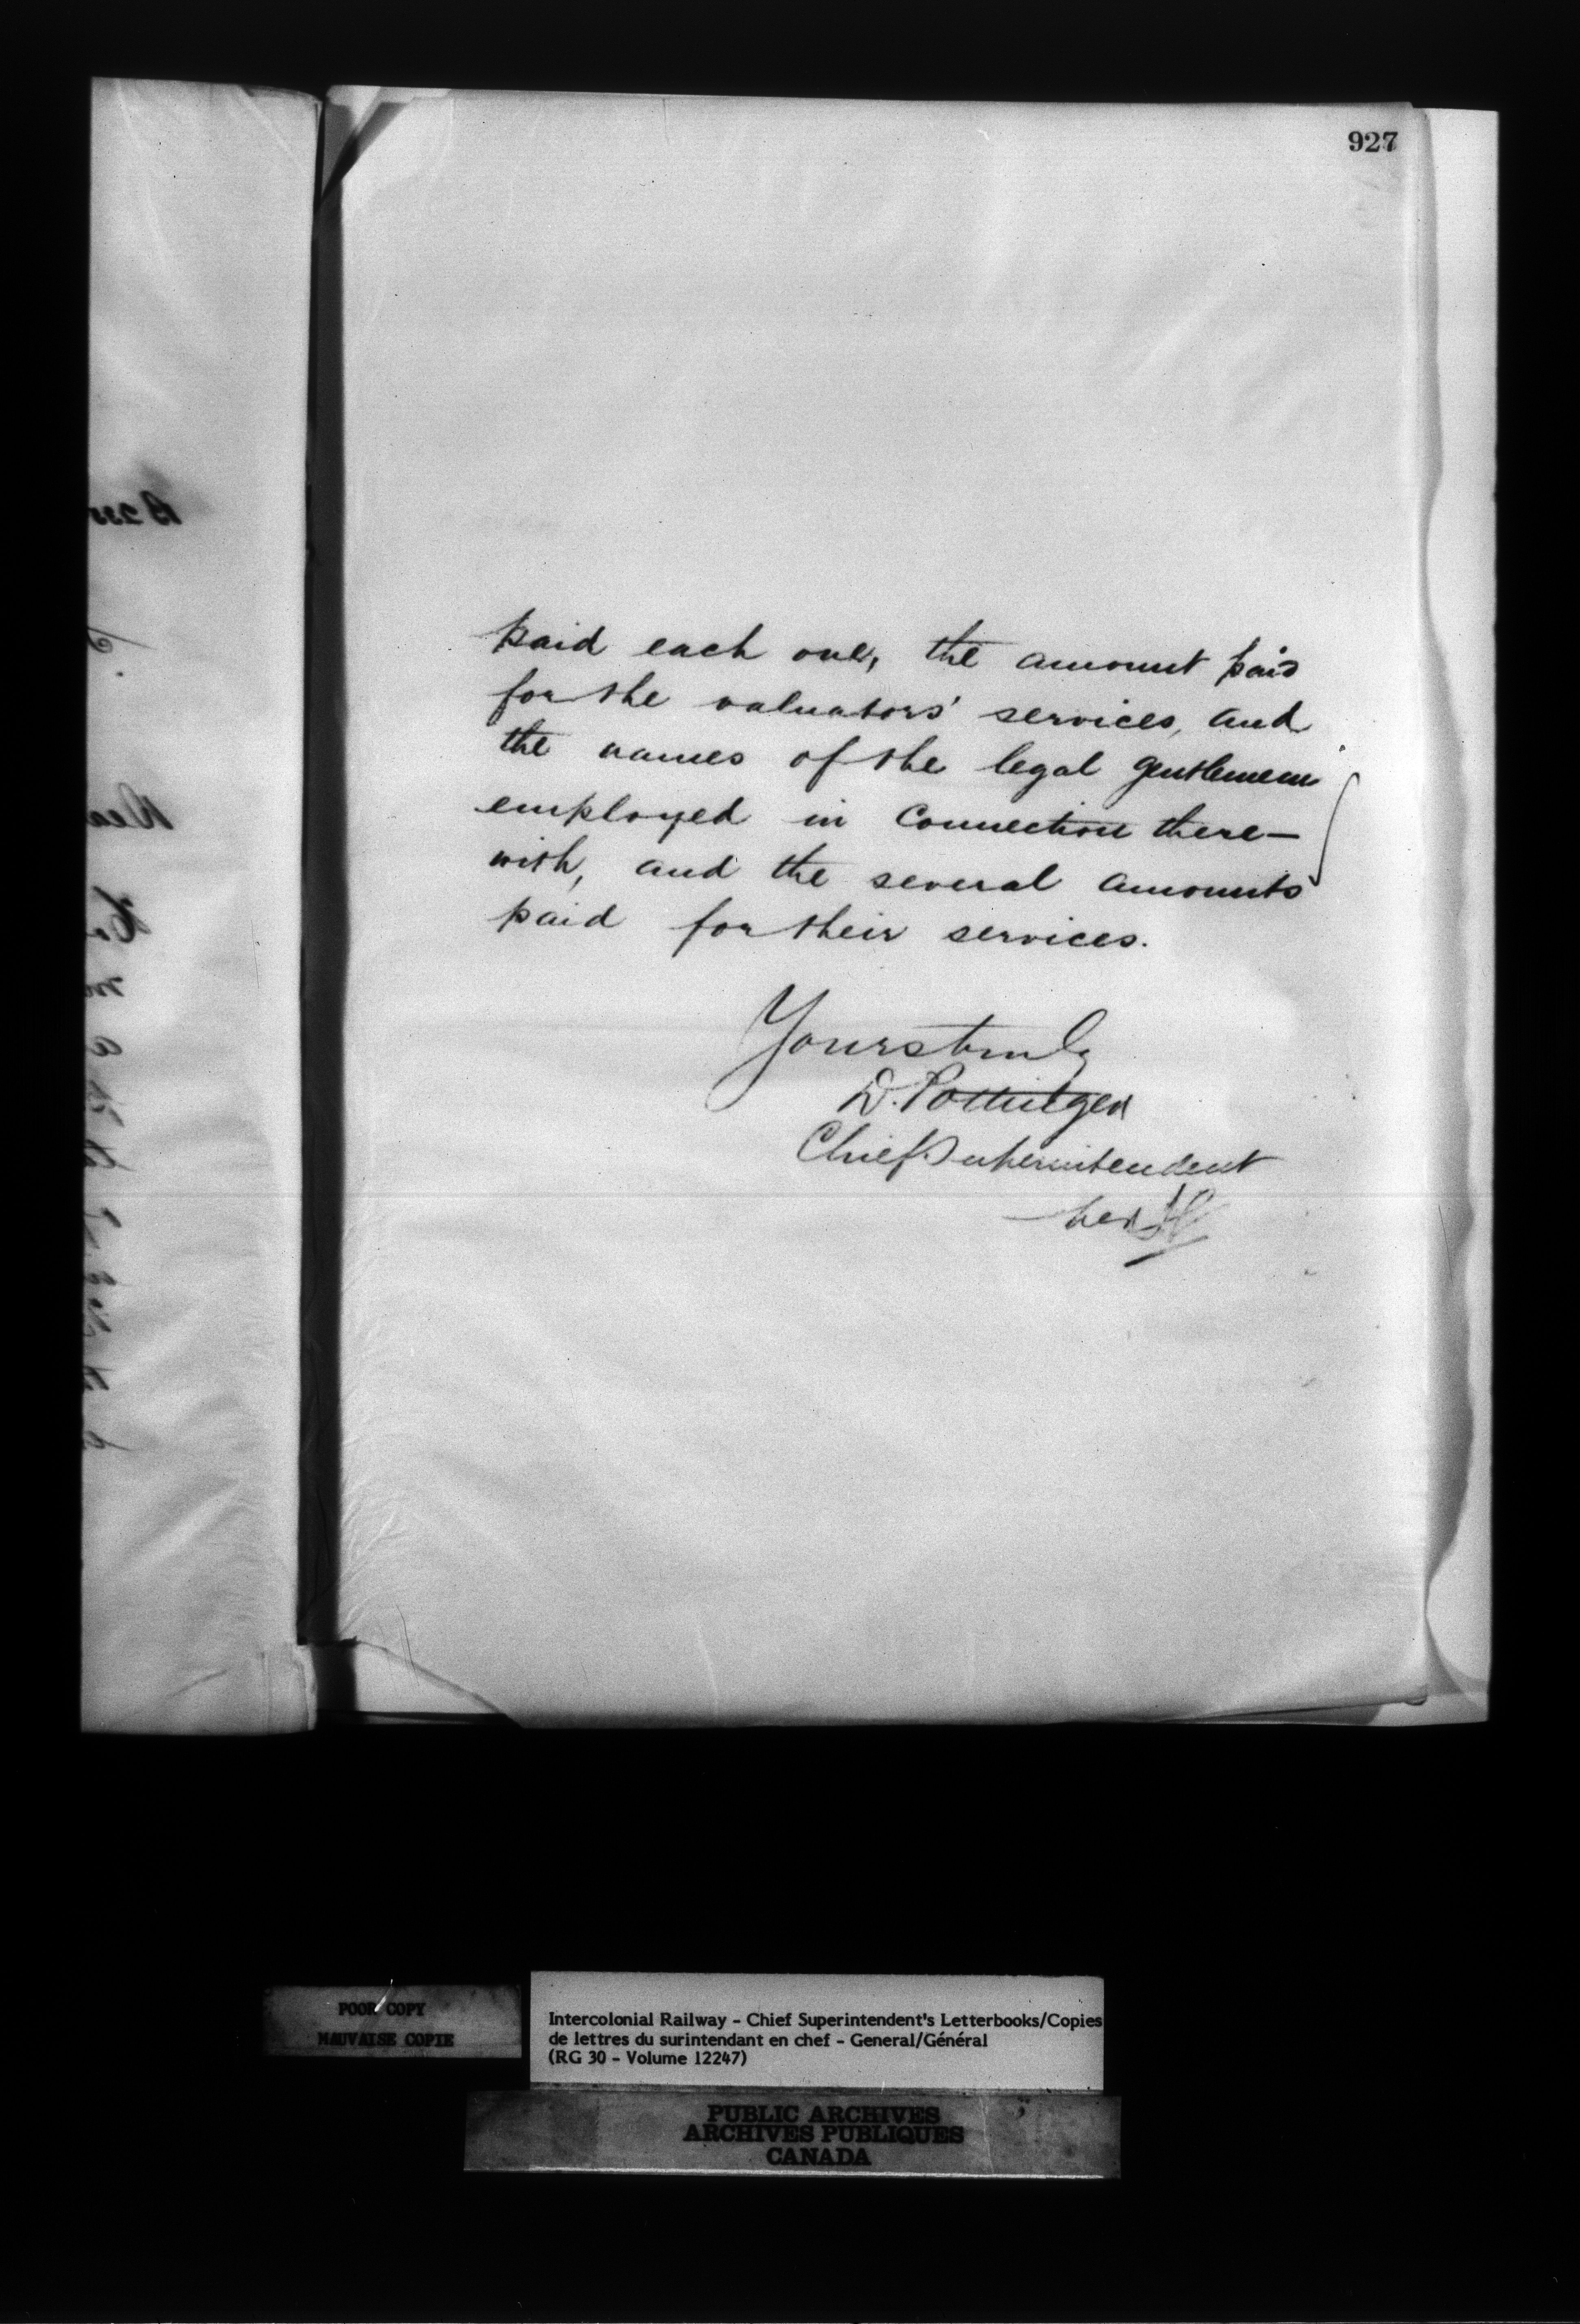 927
paid each one, the amount paid
for the valuators' services, and
the names of the legal gentlemen
employed in connection there-
with, and the several amounts
paid for their services.
Yours truly
D. Pottinger
Chief Superintendent
per
POOR COPY
MAUVAISE COPIE
Intercolonial Railway - Chief Superintendent's Letterbooks/Copies
de lettres du surintendant en chef - General/Général
(RG 30 - Volume 12247)
PUBLIC ARCHIVES
ARCHIVES PUBLIQUES
CANADA